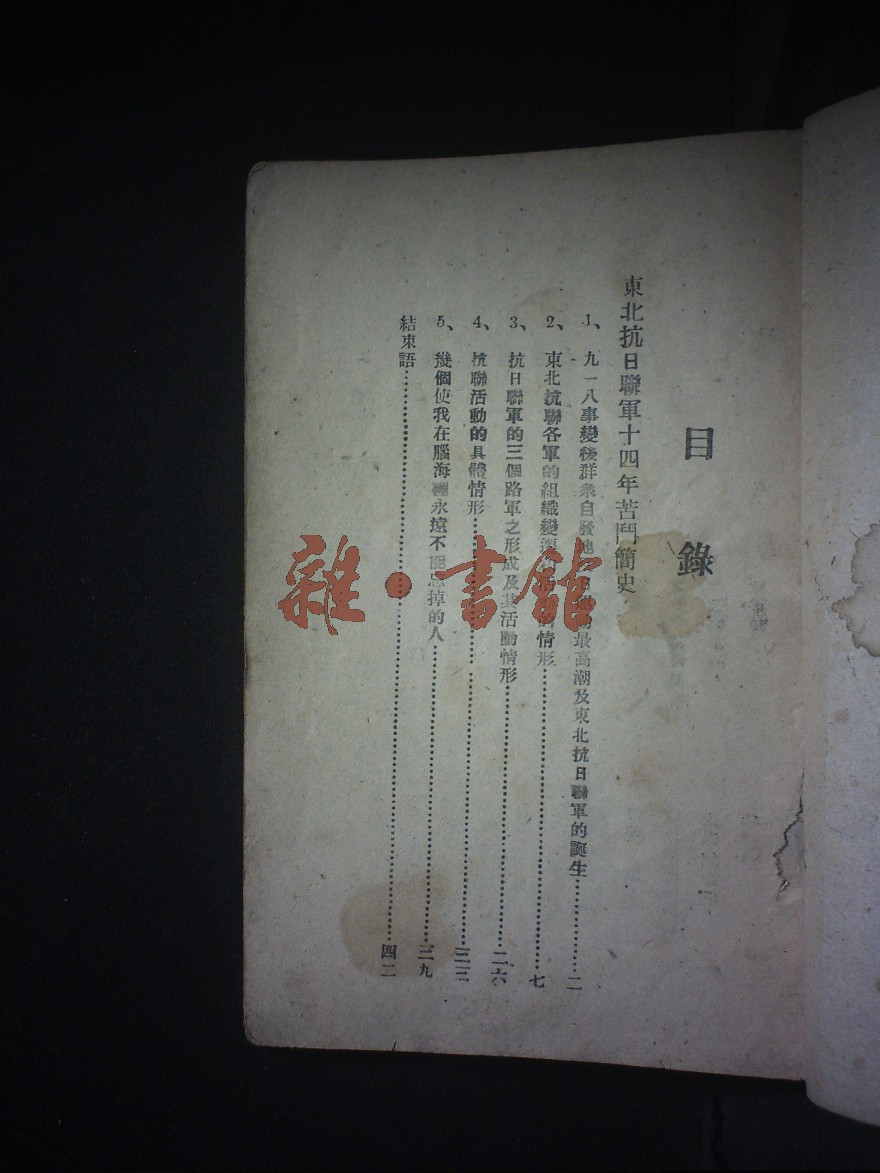 目錄
東北抗日聯軍十四年苦鬥簡史
1、九一八事變後群衆自發地最高潮及東北抗日聯軍的誕生……二
2、東北抗聯各軍的組織變情形……七
3、抗日聯軍的三個路軍之形成及其活動情形……二六
4、抗聯活動的具體情形……三三
5、幾個使我在腦海裡永遠不能忘掉的人……三九
結束語……四二
雜·書館